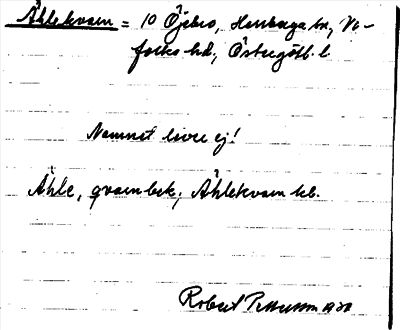 Åhlekvarn = 10 Öjebro, Herrberga sn, Vi-
folks hd, Östergötl. l
Namnet lever ej!
Åhle, qvarn bek; Åhlekvarn kb.
Robert Pettersson 1930